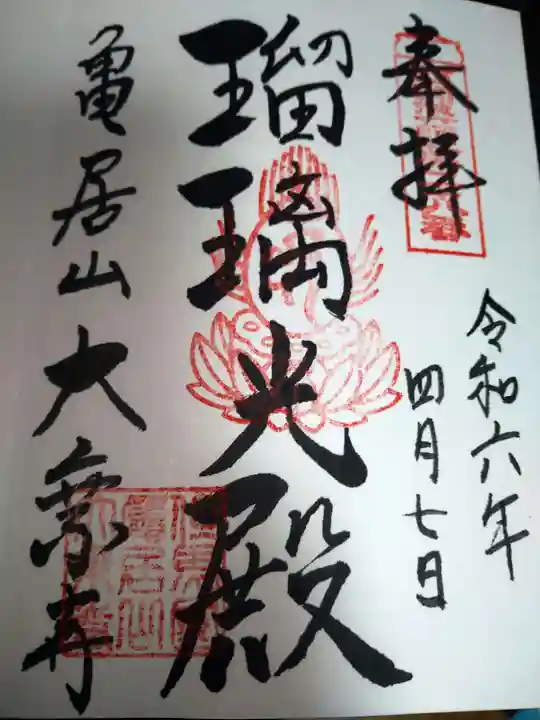 奉拝
令和六年
四月七日
瑠璃光殿
亀居山大乗寺